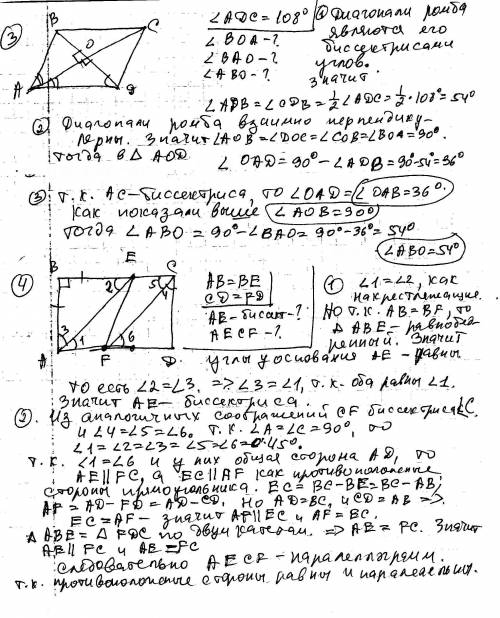 ③ B C ∠ADC = 108° ① Диагонали ромба
O ∠BOA - ? являются его
∠BAO - ? биссектрисами
A D ∠ABO - ? углов.
Значит
∠ADB = ∠ODB = 1/2 ∠ADC = 1/2 · 108° = 54°
② Диагонали ромба взаимно перпендику-
лярны. Значит ∠AOB = ∠DOC = ∠COB = ∠BOA = 90°.
Тогда в Δ AOD
∠OAD = 90° - ∠ADB = 90° - 54° = 36°
③ Т.к. AC - биссектриса, то ∠OAD = ∠OAB = 36°
Как показали выше ∠AOB = 90°
Тогда ∠ABO = 90° - ∠BAO = 90° - 36° = 54°
∠ABO = 54°
④ B E C AB = BE ① ∠1 = ∠2, как
2 5 4 CD = FD накрестлежащие.
AE - биссект - ? Но т.к. AB = BF, то
3 1 6 AECF - ? Δ ABE - равнобед
A F D ренный. Значит
углы у основания AE - равны
то есть ∠2 = ∠3. => ∠3 = ∠1, т.к. оба равны ∠1.
Значит AE - биссектриса.
2. Из аналогичных соображений CF биссектриса ∠C.
и ∠4 = ∠5 = ∠6. Т.к. ∠A = ∠C = 90°, то
∠1 = ∠2 = ∠3 = ∠5 = ∠6 = 45°.
Т.к. ∠1 = ∠6 и у них общая сторона AD, то
AE || FC, а EC || AF как противоположные
стороны прямоугольника. EC = BC - BE = BC - AB,
AF = AD - FD = AD - CD. Но AD = BC, и CD = AB =>
EC = AF - значит AF || EC и AF = EC.
Δ ABE = Δ FDC по двум катетам. => AE = FC. Значит
AE || FC и AE = FC
Следовательно AECF - параллелограмм.
т.к. противоположные стороны равны и параллельны.